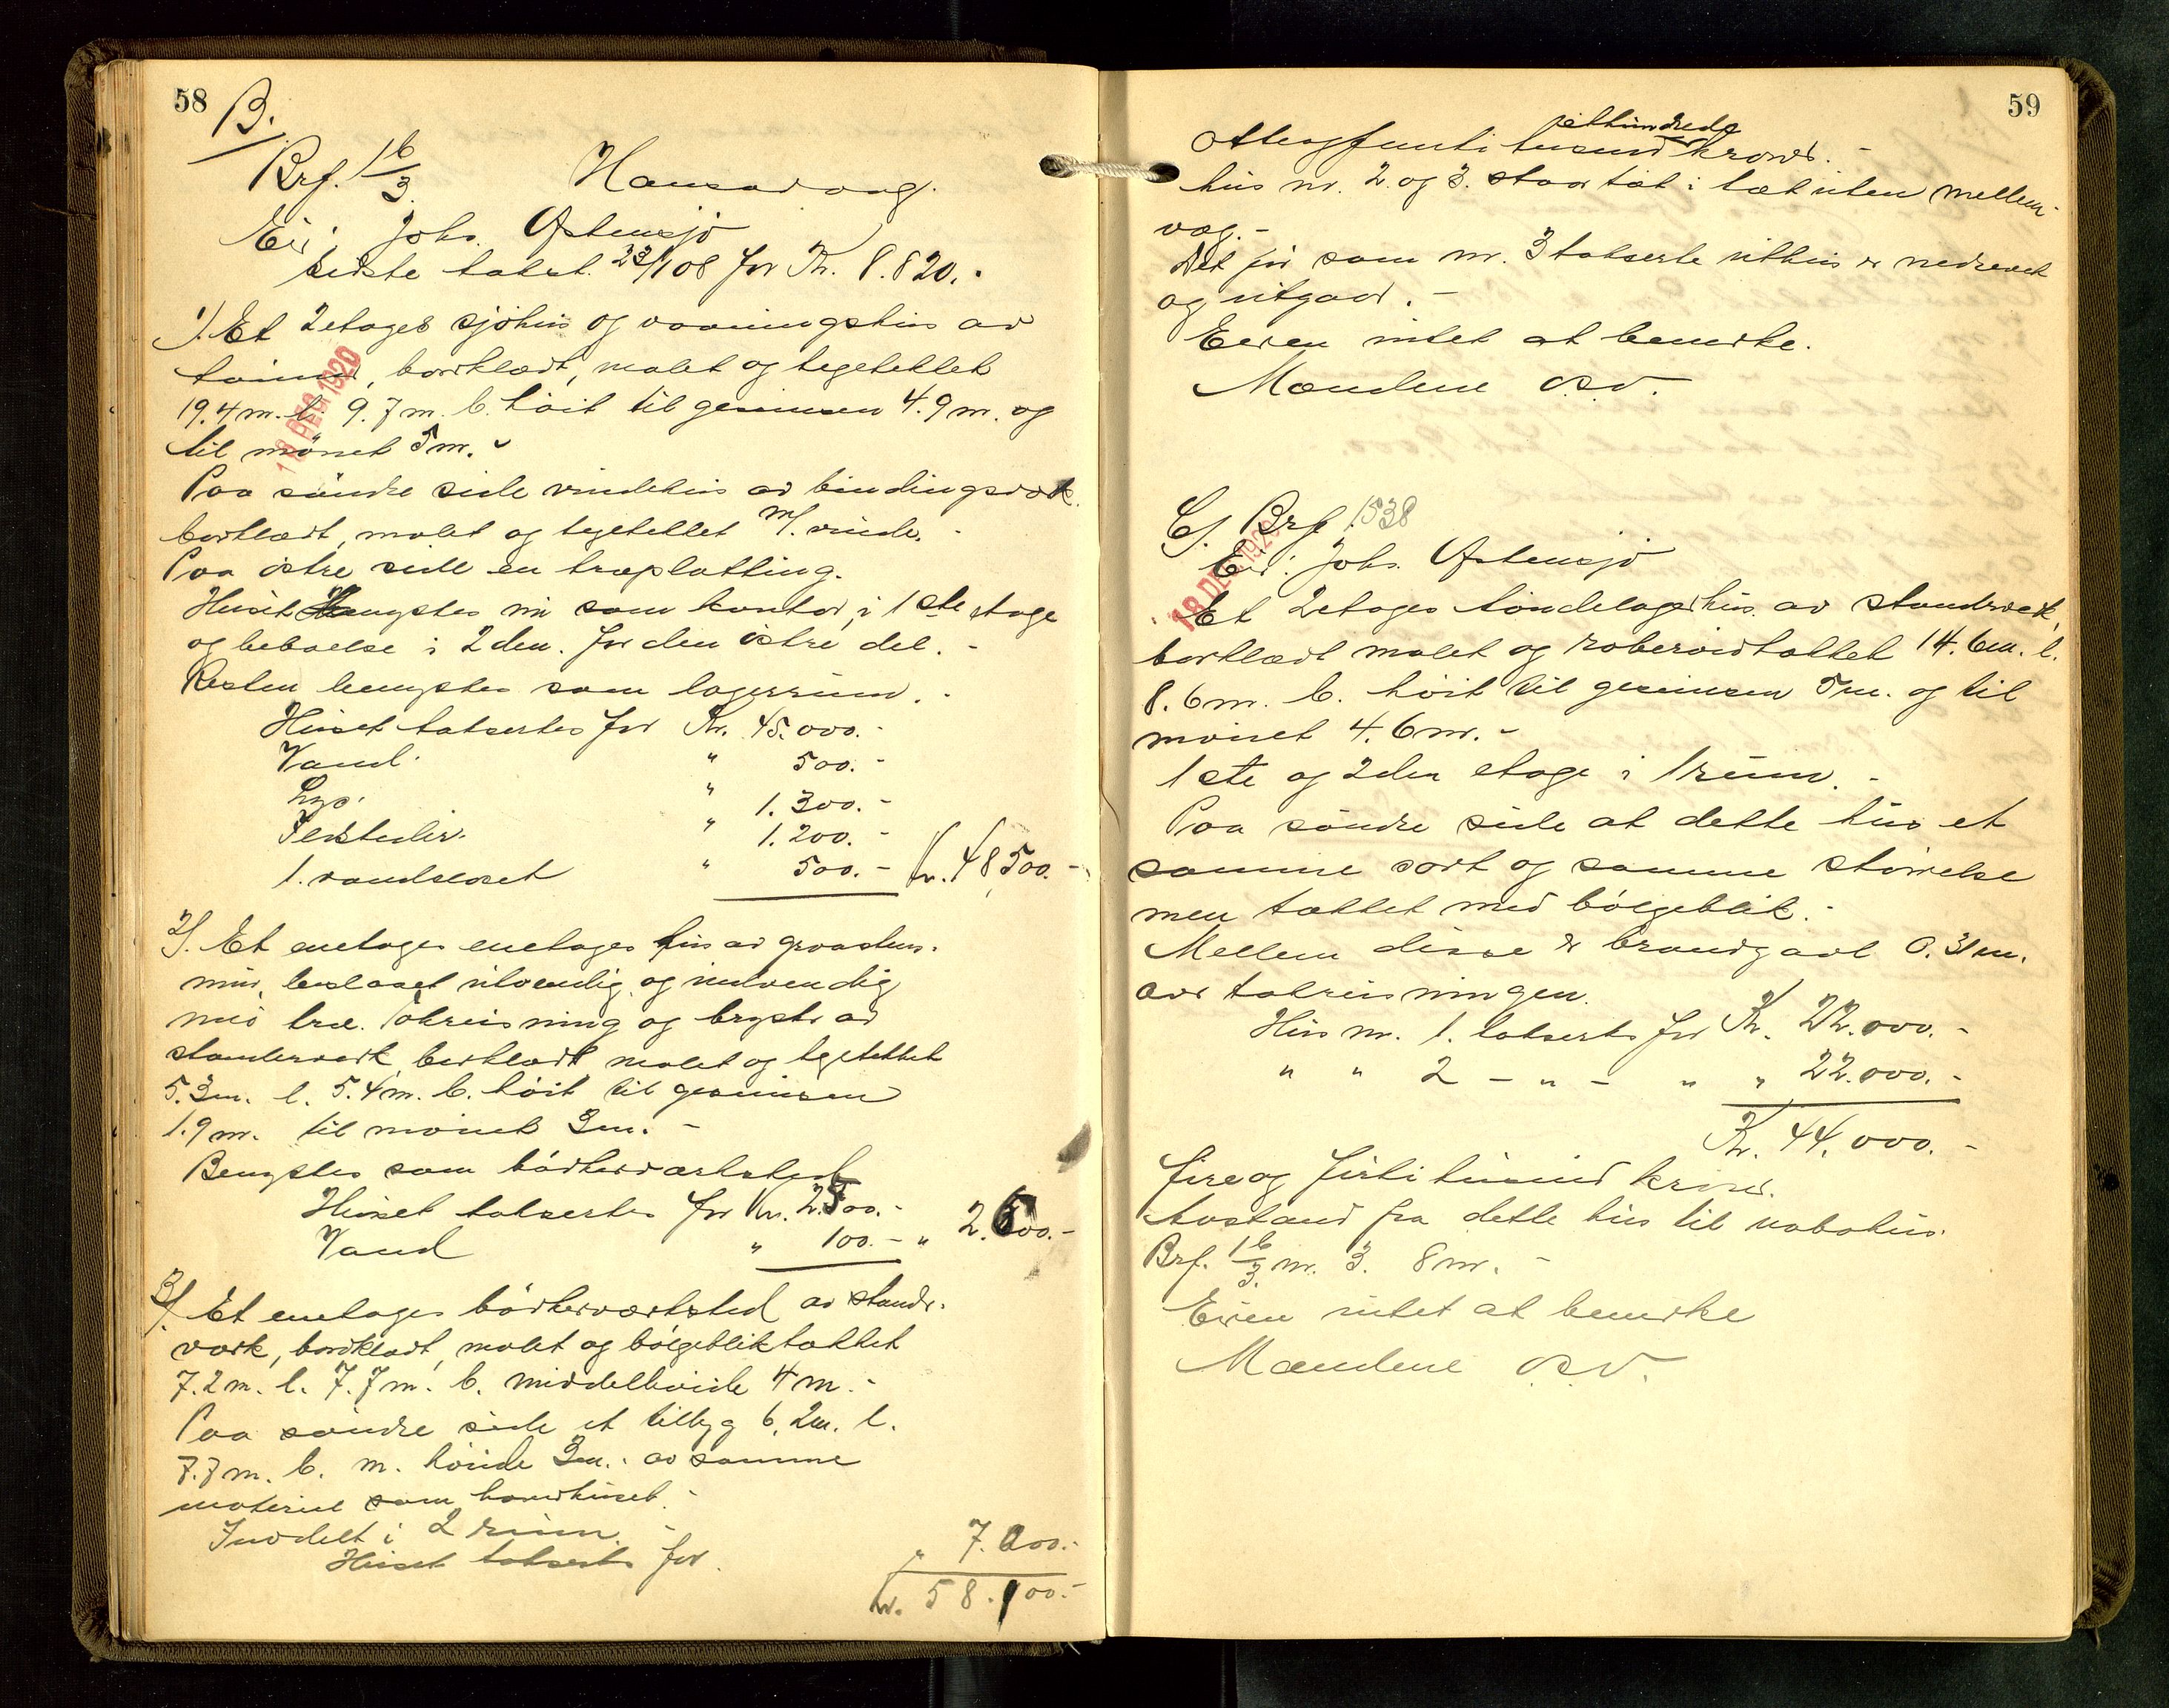 58
B.
Brf. 16/3. Hansavaag.
Eier, Johs. Østensjö
sidste takst. 23/1 08 for Kr. 8.820.-
1). Et 2etages sjöhus og vaaningshus av
tømmer, bordklædt, malet og tegltekket
19.4 m. l. 9.7 m. b. höit til gesimsen 4.9 m. og
til mönet 5 m.-
18 DEC 1920
Paa söndre side vindehus av bindingsverk
bordklædt, malet og tegltekket m/. vinde.-
Paa östre side en træplatting.
Huset benyttes nu som kontor i 1ste etage
og beboelse i 2den. for den östre del.-
Resten benyttes som lagerrum.-
Huset takseres for Kr. 45.000.-
Vand. " 500.-
Lys. " 1.300.-
" 1.200.-
1. vandkloset " 500.- Kr. 48,500.-
2). Et enetages enetages hus av graastens-
mur, beslaaet utvendig og indvendig
med træ. Takreisning og bryst av
standerverk, bordklædt, malet og tegltekket
5.3m. l. 5.4m. b. höit til gesimsen
1.9 m. til mönet 3m.-
Benyttes som bödkerværksted
Huset takseres for Kr. 2.500.-
Vand " 100.- " 2.600.-
3). Et enetages bödkerværksted av stander-
værk, bordklædt, malet og bölgebliktækket
7.2 m. l. 7.7 m. b. middelhöide 4 m.-
Paa söndre side et tilbyg 6,2m. l.
7.7 m. b. m. höide 3m. av samme
materiel som hovedhuset.-
Inddelt i 2 rum.-
Huset takseres for. " 7.000.-
kr. 58.100.-
59
ethundrede
otteogfemti tusend kroner.-
hus nr. 2. og 3. staar tæt i tæt uten mellem-
væg.-
Det för som nr. 3 takserte uthus er nedrevet
og utgaar.-
Eieren intet at bemerke.
Mændene o.s.v.
C). Brf. 1538
18 DEC 1920
Eier: Johs. Østensjö
Et 2etages töndelagerhus av standerverk,
bordklædt malet og ruberoidtækket 14.6m. l.
8.6 m. b. höit til gesimsen 5m. og til
mönet 4.6m.-
1ste og 2den etage i 1 rum.-
Paa söndre side at dette hus et
samme sort og samme störrelse
men tækket med bölgeblik.-
Mellem disse er brandgavl 0.31m.
over takreisningen.
Hus nr. 1. takseres for Kr. 22.000.-
" " 2 - " - " " 22.000.-
Kr. 44.000.-
fire og firti tusind kroner.
Avstand fra dette hus til nabohus.
Brf. 16/3. nr. 3. 8 m.-
Eieren intet at bemerke
Mændene o.s.v.